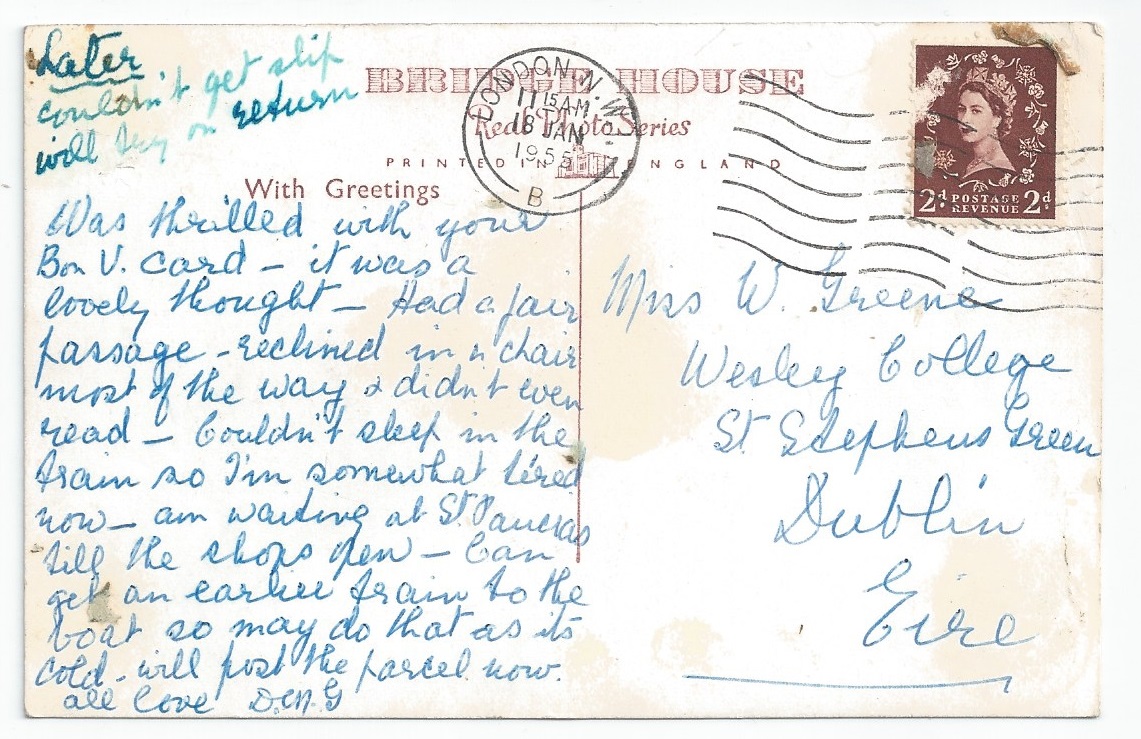 Later
couldn't get slip
will try on return
BRIDGE HOUSE
Real Photo Series
PRINTED IN ENGLAND
With Greetings
LONDON. N.W.
11 15 AM
18 JAN
1955
B
2d POSTAGE REVENUE 2d
Was thrilled with your
Bon V. card – it was a
lovely thought – Had a fair
passage – reclined in a chair
most of the way & didn't even
read – Couldn't sleep in the
train so I'm somewhat tired
now – am waiting at St. Pancras
till the shops open – Can
get an earlier train to the
boat so may do that as its
cold – will post the parcel now.
all love
Miss W. Greene
Wesley College
St Stephens Green
Dublin
Eire